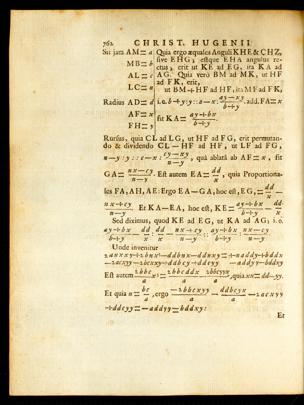 762 CHRIST. HUGENII
Sit jam AM = a Quia ergo æquales Anguli KHE & CHZ,
MB = b sive EHG; estque EHA angulus re-
AL = c ctus, erit ut KE ad EG, ita KA ad
AG. Quia verò BM ad MK, ut HF
LC = n ad FK, erit,
ut BM + HF ad HF, ita MF ad FK,
Radius AD = d i.e. b+y : y :: a−x : (ay−xy)/(b+y). add. FA = x
AF = x fit KA = (ay+bx)/(b+y).
FH = y
Rursus, quia CL ad LG, ut HF ad FG, erit permutan-
do & dividendo CL — HF ad HF, ut LF ad FG,
n−y : y :: c−x : (cy−xy)/(n−y), quâ ablatâ ab AF = x, fit
GA = (nx−cy)/(n−y). Est autem EA = dd/x, quia Proportiona-
les FA, AH, AE: Ergo EA — GA, hoc est, EG, = dd/x −
(nx+cy)/(n−y). Et KA — EA, hoc est, KE = (ay+bx)/(b+y) − dd/x
Sed diximus, quod KE ad EG, ut KA ad AG; i. e.
(ay+bx)/(b+y) − dd/x : dd/x − (nx+cy)/(n−y) :: (ay+bx)/(b+y) : (nx−cy)/(n−y)
Unde invenitur
Est autem quia xx = dd−yy.
Et quia n = bc/a, ergo
+ddcyy = −addyy−bddxy:
Et